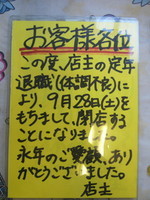 お客様各位
この度、店主の定年
退職(体調不良)に
より、9月28日(土)を
もちまして、閉店する
ことになりました。
永年のご愛顧、あり
がとうございました。
店主